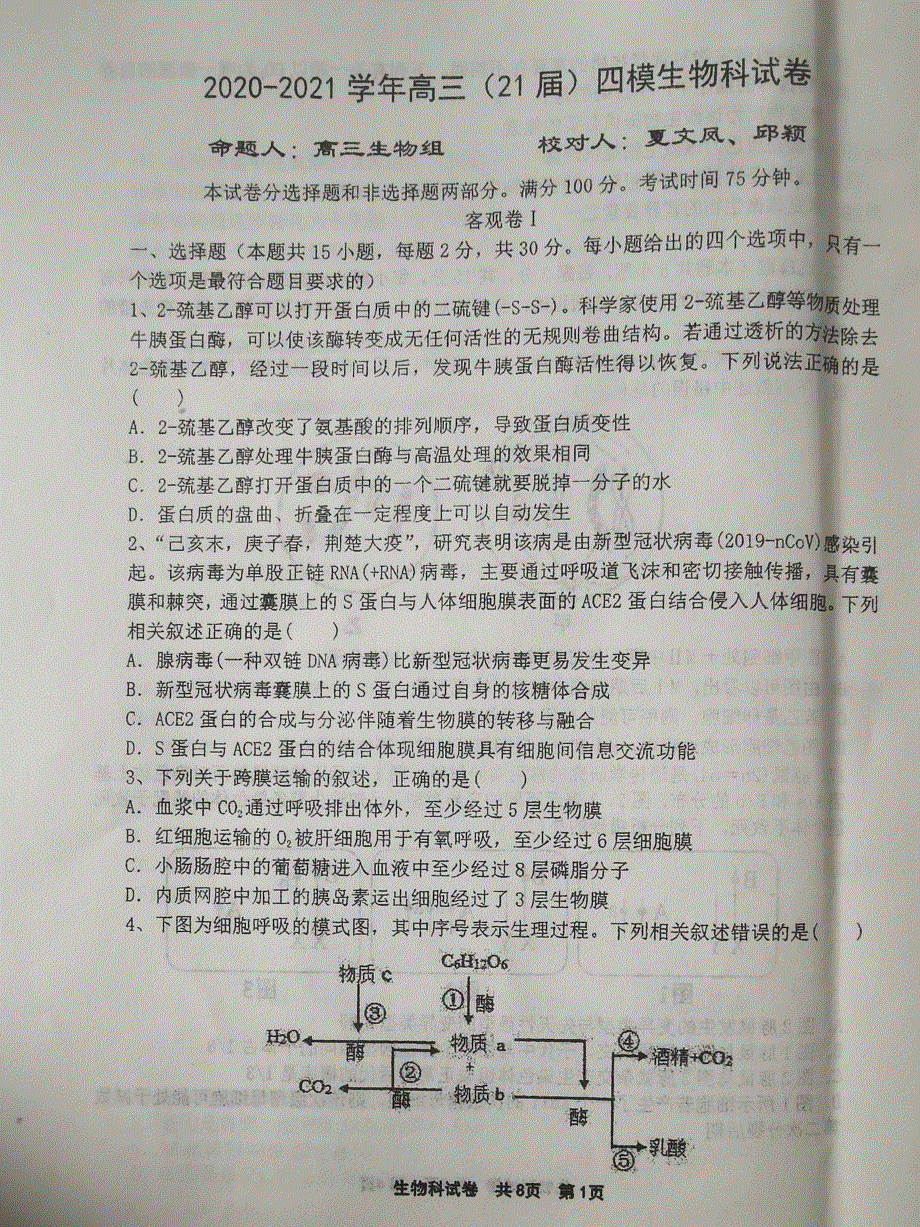 2020-2021 学年高三（21 届）四模生物科试卷
命题人：高三生物组 校对人：夏文凤、邱颖
本试卷分选择题和非选择题两部分。满分 100 分。考试时间 75 分钟。
客观卷 I
一、选择题（本题共 15 小题，每题 2 分，共 30 分。每小题给出的四个选项中，只有一
个选项是最符合题目要求的）
1、2-巯基乙醇可以打开蛋白质中的二硫键(-S-S-)。科学家使用 2-巯基乙醇等物质处理
牛胰蛋白酶，可以使该酶转变成无任何活性的无规则卷曲结构。若通过透析的方法除去
2-巯基乙醇，经过一段时间以后，发现牛胰蛋白酶活性得以恢复。下列说法正确的是
( )
A．2-巯基乙醇改变了氨基酸的排列顺序，导致蛋白质变性
B．2-巯基乙醇处理牛胰蛋白酶与高温处理的效果相同
C．2-巯基乙醇打开蛋白质中的一个二硫键就要脱掉一分子的水
D．蛋白质的盘曲、折叠在一定程度上可以自动发生
2、“己亥末，庚子春，荆楚大疫”，研究表明该病是由新型冠状病毒(2019-nCoV)感染引
起。该病毒为单股正链 RNA(+RNA)病毒，主要通过呼吸道飞沫和密切接触传播，具有囊
膜和棘突，通过囊膜上的 S 蛋白与人体细胞膜表面的 ACE2 蛋白结合侵入人体细胞。下列
相关叙述正确的是( )
A．腺病毒(一种双链 DNA 病毒)比新型冠状病毒更易发生变异
B．新型冠状病毒囊膜上的 S 蛋白通过自身的核糖体合成
C．ACE2 蛋白的合成与分泌伴随着生物膜的转移与融合
D．S 蛋白与 ACE2 蛋白的结合体现细胞膜具有细胞间信息交流功能
3、下列关于跨膜运输的叙述，正确的是( )
A．血浆中 CO₂通过呼吸排出体外，至少经过 5 层生物膜
B．红细胞运输的 O₂被肝细胞用于有氧呼吸，至少经过 6 层细胞膜
C．小肠肠腔中的葡萄糖进入血液中至少经过 8 层磷脂分子
D．内质网腔中加工的胰岛素运出细胞经过了 3 层生物膜
4、下图为细胞呼吸的模式图，其中序号表示生理过程。下列相关叙述错误的是( )
物质 c C₆H₁₂O₆
③ ① 酶
H₂O 酶 物质 a ④ 酒精+CO₂
② +
CO₂ 酶 物质 b 酶
⑤ 乳酸
生物科试卷 共 8页 第 1页